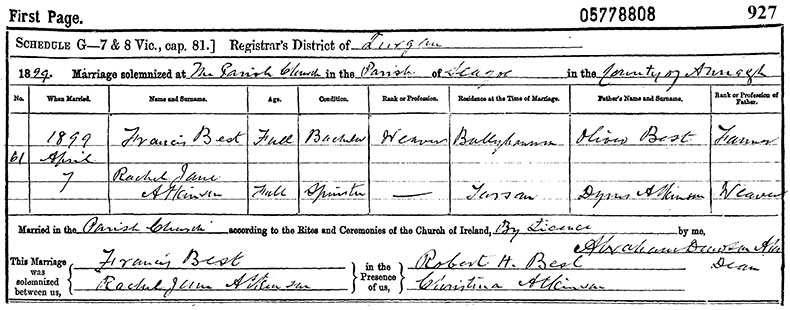 First Page. 05778808 927
SCHEDULE G—7 & 8 Vic., cap. 81.] Registrar's District of Lurgan
1899. Marriage solemnized at The Parish Church in the Parish of Seagoe in the County of Armagh
No. When Married. Name and Surname. Age. Condition. Rank or Profession. Residence at the Time of Marriage. Father's Name and Surname. Rank or Profession of Father.
1899 Francis Best Full Bachelor Weaver Oliver Best Farmer
61 April
7 Rachel Jane
Atkinson Full Spinster — Tarsan Atkinson Weaver
Married in the Parish Church according to the Rites and Ceremonies of the Church of Ireland, By Licence by me,
Abraham Dawson
Dean
This Marriage was solemnized between us, Francis Best in the Presence of us, Robert H. Best
Rachel Jane Atkinson Christina Atkinson